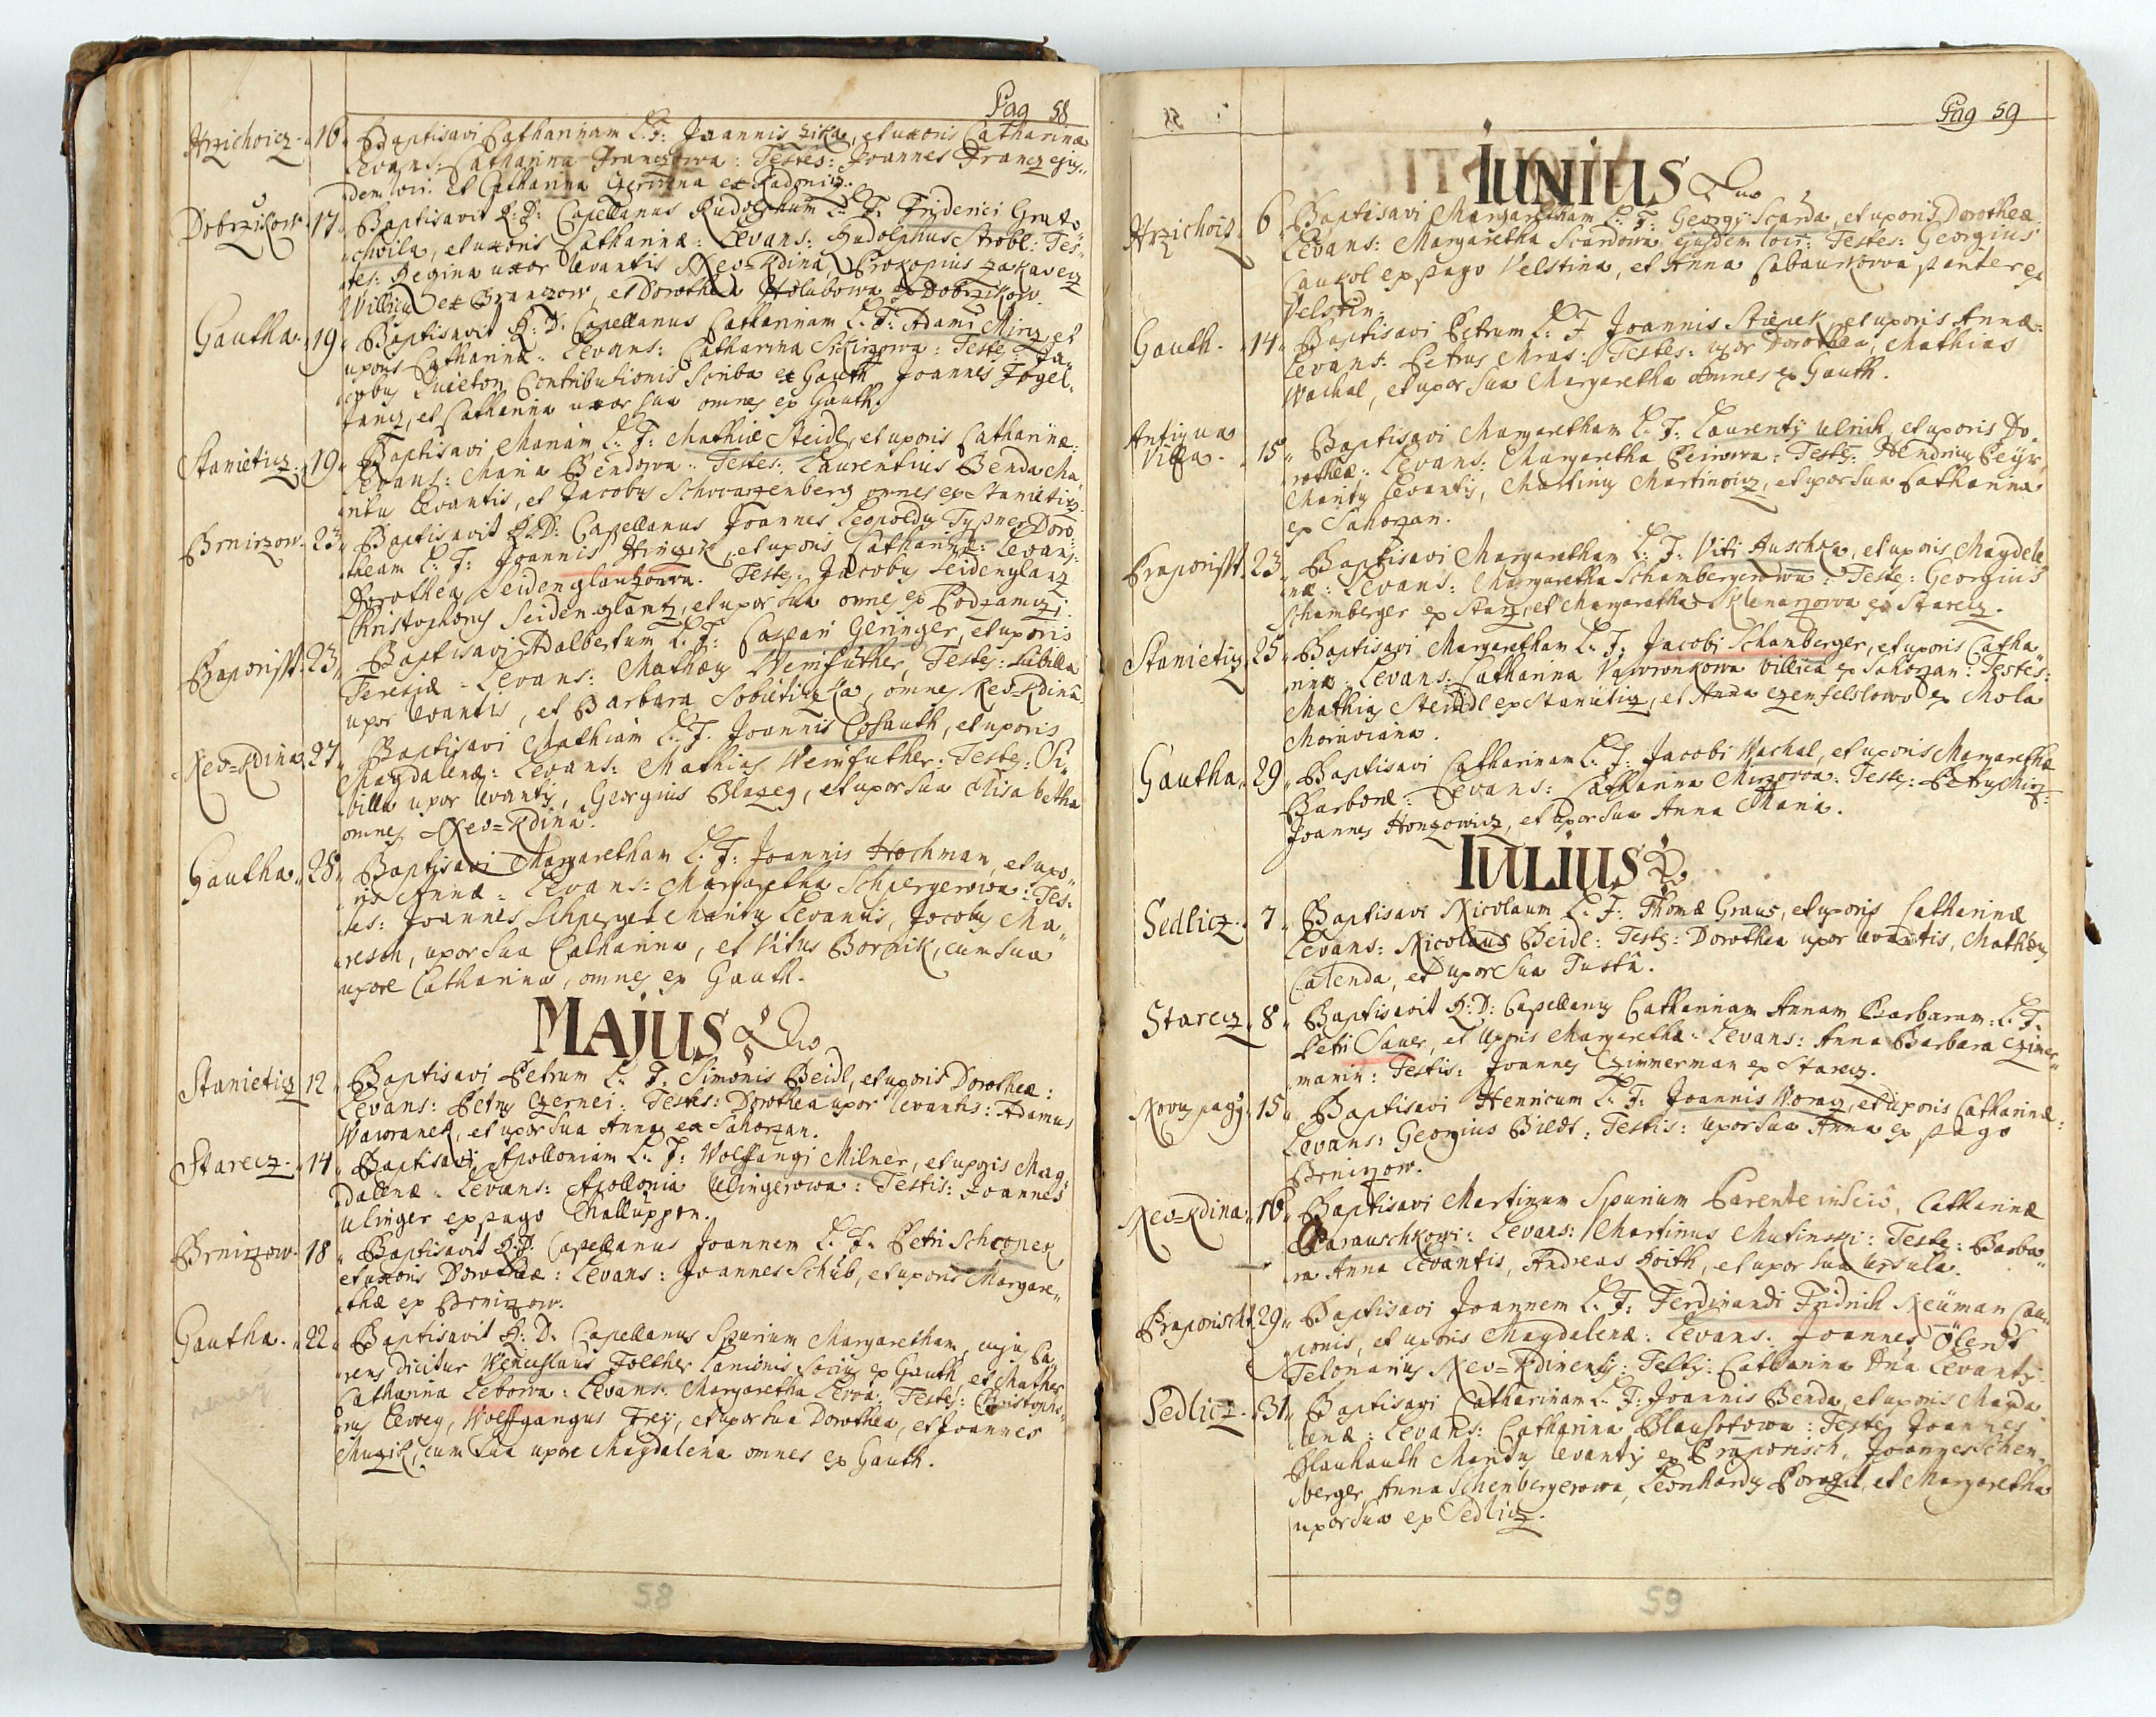 Pag 58
Hrzichoicz 16 Baptisavi Catharinam L. F: Joannis zika, et uxoris Catharinæ
Levans: Catharina Franczowa: Testes: Joannes Francz ejus„
dem loci: et Catharina Czerinna ex Radonicz.
Dobrzikow. 17. Baptisavit R: D: Capellanus Rudolphum L. F: Friderici Grato„
chwila, et uxoris Catharinæ: Levans: Rudolphus Strobl: Tes„
tes: Regina uxor levantis Neo=Kdina, Prokopius zakavecz
Villicus ex Branczow, et Dorothea Holubowa ex Dobrzikow.
Gautha. 19 Baptisavit R: D. Capellanus Catharinam L. F: Adami Mirz, et
uxoris Catharinæ: Levans: Catharina Testes: Ja„
cobus Quieton Contributionis Scriba ex Gauth Joannes Fogel„
tancz, et Catharina uxor sua omnes ex Gauth.
Stanieticz. 19 Baptisavi Mariam L. F: Mathiæ Steidl, et uxoris Catharinæ:
Levans: Maria Bendowa: Testes: Laurentius Benda Ma„
ritus Levantis, et Jacobus Schwarzenberg omnes ex Stanieticz.
Brnirzow. 23 Baptisavit R: D: Capellanus Joannes Leopoldus Tyßner Doro„
theam L. F: Joannis Hinzik, et uxoris Catharinæ: Levans:
Dorothea Seidenglanzowa. Testes: Jacobus Seidenglanz
Christophorus Seidenglantz, et uxor sua omnes ex Podzamczi.
Praporisst. 23 Baptisavi Adalbertum L. F: Caspari Geringer, et uxoris
Teresiæ: Levans: Mathæus Weinfuther, Testes: Sibilla
uxor levantis, et Barbara Sobieticzka, omnes Neo=Kdina.
Neo=Kdina. 27 Baptisavi Mathiam L. F. Joannis Cohauth, et uxoris
Magdalenæ: Levans: Mathias Weinfuther: Testes: Si„
billa uxor levantis, Georgius Blazeg, et uxor sua Elisabetha
omnes Neo=Kdina.
Gautha. 28 Baptisavi Margaretham L. F: Joannis Hochman, et uxo„
ris Annæ: Levans: Margaretha Schpergerowa: Tes„
tes: Joannes Schperger Maritus Levantis, Jacobus Ma„
resch, uxor sua Catharina, et Vitus Bornik, cum sua
uxore Catharina, omnes ex Gauth.
MAJUS
Stanieticz 12 Baptisavi Petrum L. F. Simonis Beidl, et uxoris Dorotheæ:
Levans: Petrus Czernei: Testes: Dorothea uxor levantis: Adamus
Wawranek, et uxor sua Anna ex Sahorzan.
Starecz. 14 Baptisavi Apolloniam L. F: Wolffangi Milner, et uxoris Mag„
dalenæ: Levans: Apollonia Ulingerowa: Testis: Joannes
Ulinger ex pago Challuppen.
Brnirzow. 18 Baptisavit R: D. Capellanus Joannem L. F. Petri Schopek
et uxoris Dorotheæ: Levans: Joannes Schüb, et uxoris Margare„
thæ ex Brnirzow.
Gautha. 22 Baptisavit R: D. Capellanus Spurium Margaretham, cujus Pa„
rens dicitur Wenceslaus Folther Lanionis Socius ex Gauth et Mather
Catharina Lebowa: Levans: Margaretha Levoa: Testes: Christopho„
rus Levey, Wolffgangus Frey, et uxor sua Dorothea, et Joannes
Muzik, cum sua uxore Magdalena omnes ex Gauth.
58
Pag 59
IUNIUS
Hrzichoiz. 6 Baptisavi Margaretham L. F: Georgy Scarda, et uxoris Dorotheæ
Levans: Margaretha Scardowa ejusdem loci: Testes: Georgius
Caukol ex pago Velstina, et Anna Cabaunkowa pariter ex
Velstin.
Gauth. 14 Baptisavi Petrum L. F Joannis Stiepek, et uxoris Annæ:
Levans: Petrus Mras: Testes: uxor Dorothea, Mathias
Wachal, et uxor sua Margaretha omnes ex Gauth.
Antiqua
Villa. 15 Baptisavi Margaretham L. F: Laurenty Ulrich, et uxoris Do„
rotheæ: Levans: Margaretha Peirowa: Testes: Hendricus Peyr
Maritus Levantis, Martinus Martinowicz, et uxor sua Catharina
ex Sahorzan.
Praporisst. 23 Baptisavi Margaretham L. F: Viti Huschka, et uxoris Magdale„
næ: Levans: Margaretha Schambergerowa: Testes: Georgius
Schamberger ex Starz, et Margaretha Klenarzowa ex Starecz.
Stanieticz 25 Baptisavi Margaretham L. F: Jacobi Schamberger, et uxoris Catha„
rinæ: Levans: Catharina Vawronkowa Villica ex Sahorzan: Testes:
Mathias Steidl ex Stanieticz, et Anna Czenfelslowa ex Mola
Moraviana.
Gautha. 29 Baptisavi Catharinam L. F: Jacobi Wachal, et uxoris Margarethæ
Barboræ: Levans: Catharina Mirzowa: Testes: Petrus Mirz:
Joannes Honzowicz, et uxor sua Anna Maria.
IULIUS
Sedlicz. 7 Baptisavi Nicolaum L. F: Thomæ Graus, et uxoris Catharinæ
Levans: Nicolaus Beidl: Testes: Dorothea uxor levantis, Mathæus
Calenda, et uxor sua Justina.
Starecz. 8 Baptisavit R: D: Capellanus Catharinam Annam Barbaram: L. F.
Petri Sauer, et Uxoris Margarethæ: Levans: Anna Barbara Czimer„
manin: Testis: Joannes Czimmerman ex Starecz.
Novus pagus 15 Baptisavi Henricum L. F: Joannis Woracz, et uxoris Catharinæ:
Levans: Georgius Biedt: Testis: uxor sua Anna ex pago
Brnirzow.
Neo=Kdina. 16 Baptisavi Martinum Spurium Parente inscio, Catharinæ
Parauschkowi: Levans: Martinus Mutinski: Testes: Barba„
ra Anna levantis, Andreas Koith, et uxor sua Ursula.
Praporischt 29 Baptisavi Joannem L. F: Ferdinandi Fridrich Neüman Cau„
ponis, et uxoris Magdalenæ: Levans. Joannes Ölendt
Telonarius Neo=Kdinensis: Testes: Catharina Dna Levantis
Sedlicz. 31 Baptisavi Catharinam L. F: Joannis Benda, et uxoris Magda„
lenæ: Levans: Catharina Blauhotowa: Testes Joannes
Blauhauth Maritus levantis ex Praporisch, Joannes Schen„
berger, Anna Schenbergerowa, Leonhardus Poratzil, et Margaretha
uxor sua ex Sedlicz.
59